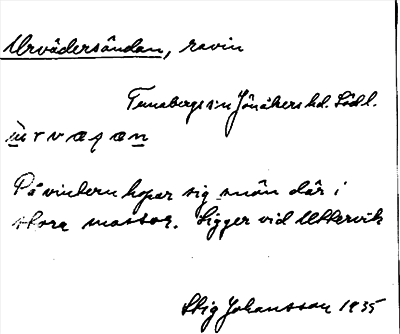 Urvädersändan, ravin
Tunabergs sn Jönåkers hd. Södl.
På vintern hopar sig snön där i
stora massor. Ligger vid Uttervik
Stig Johansson 1935